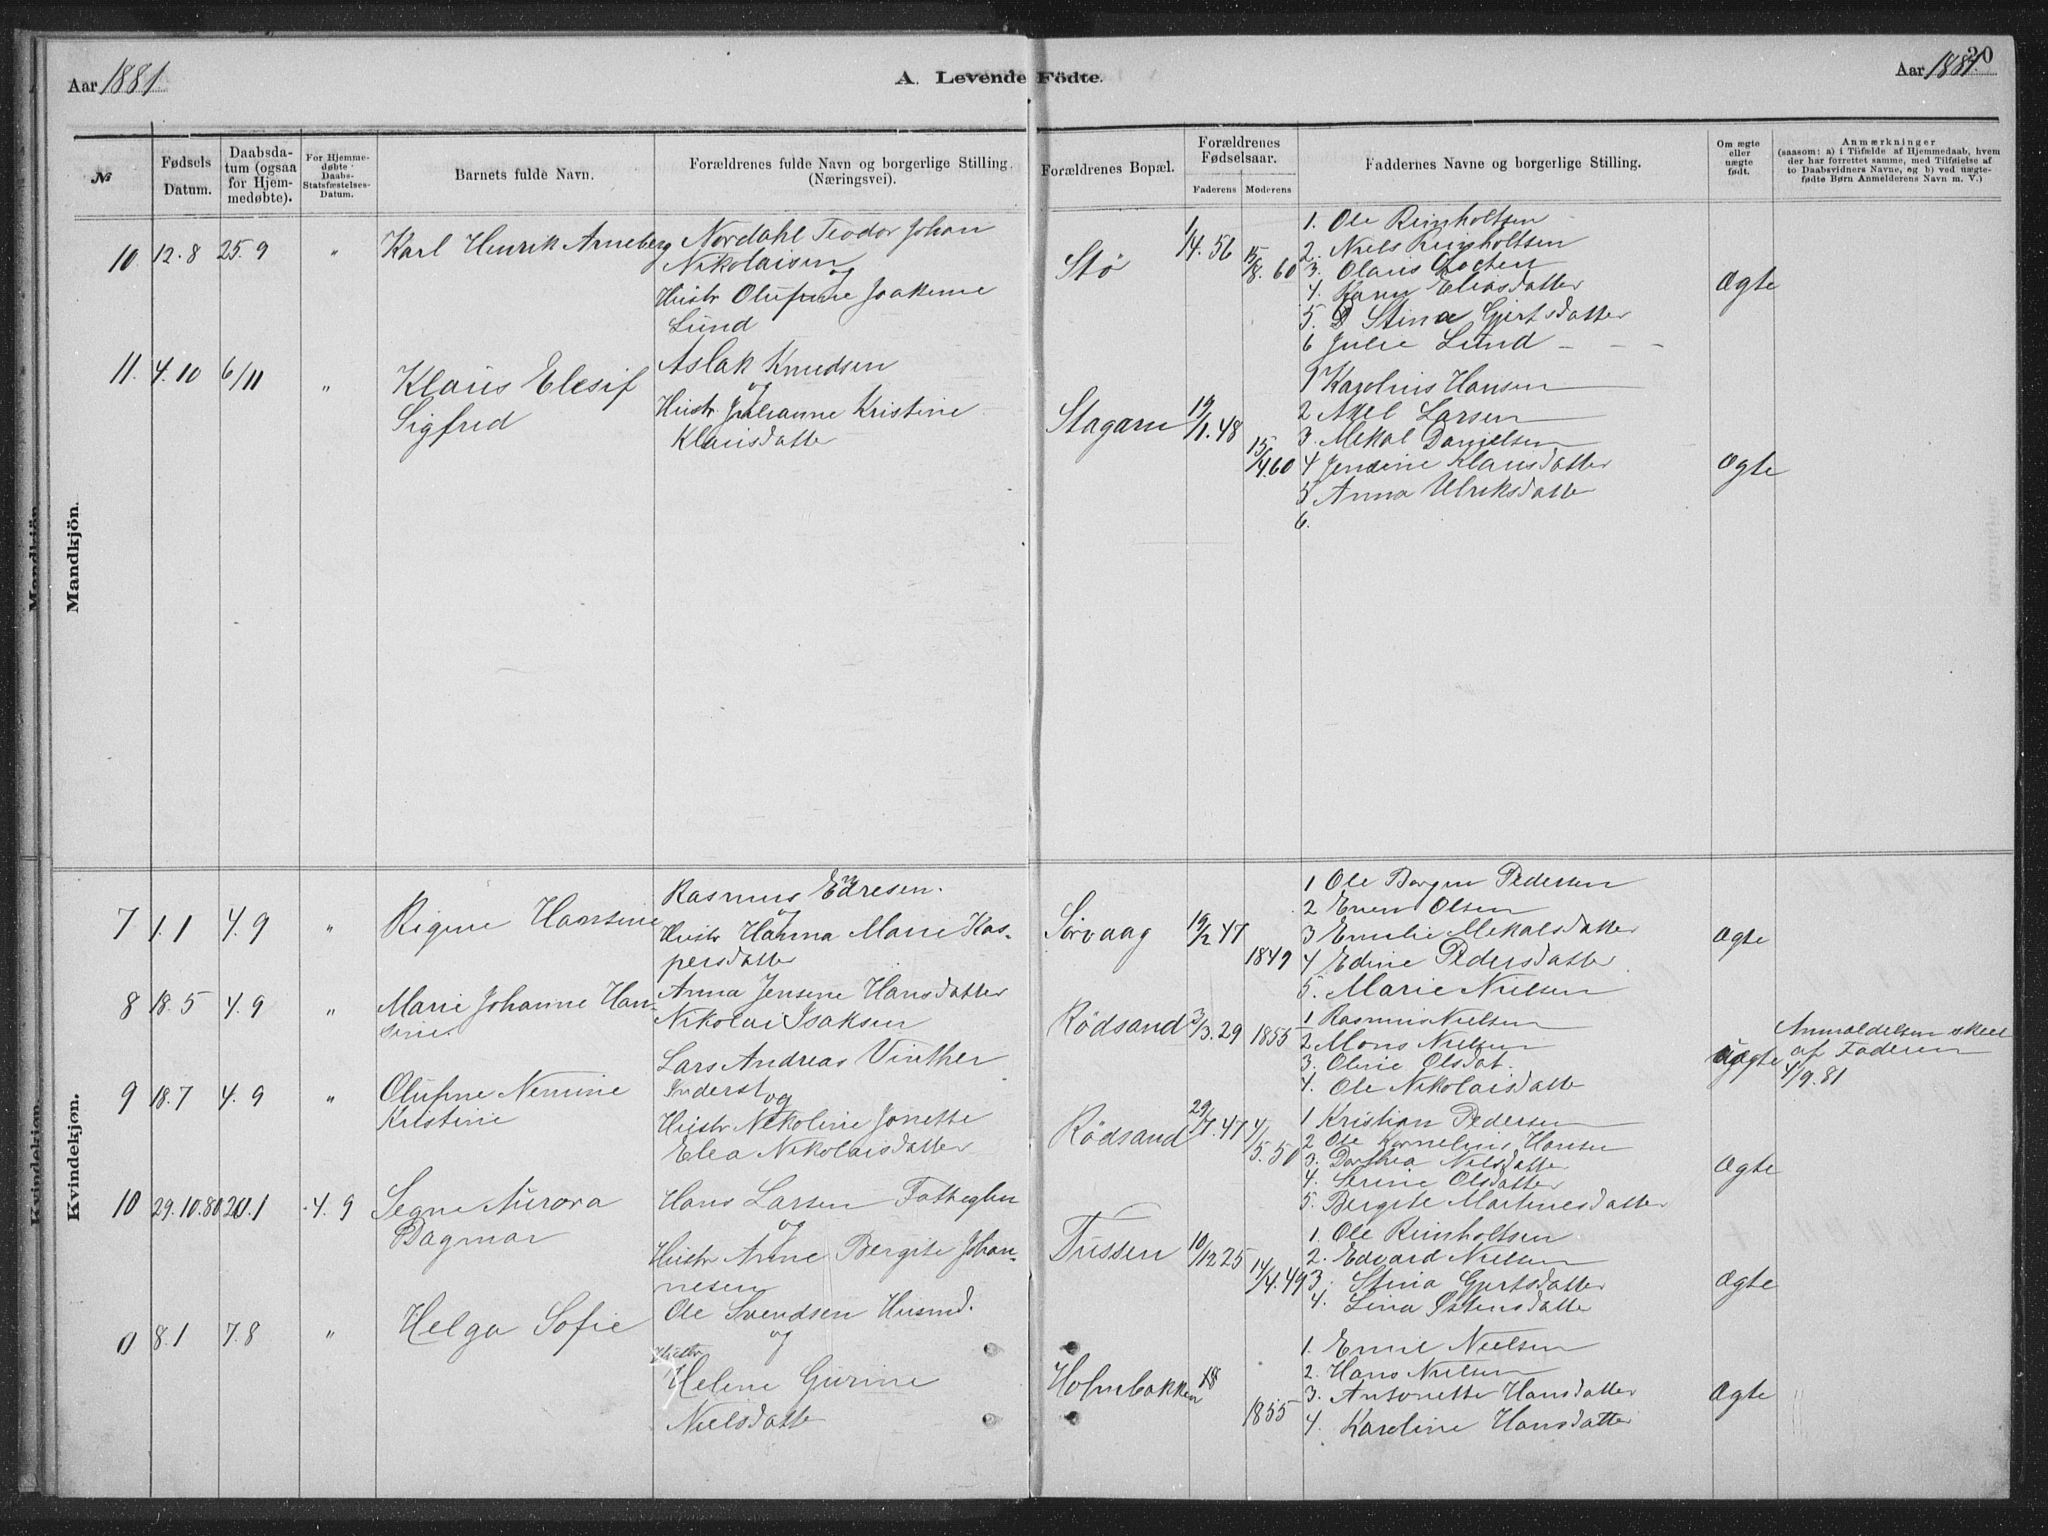 Aar 1881
A. Levende Födte.
Aar 1881.
20
№
Fødsels Datum.
Daabsdatum (ogsaa for Hjemmedøbte).
For Hjemmedøbte Daabs-Statsfæstelses-Datum.
Barnets fulde Navn.
Forældrenes fulde Navn og borgerlige Stilling. (Næringsvei).
Forældrenes Bopæl.
Forældrenes Fødselsaar.
Faderens
Moderens
Faddernes Navne og borgerlige Stilling.
Om ægte eller uægte født.
Anmærkninger
(saasom: a) i Tilfælde af Hjemmedaab, hvem der har forrettet samme, med Tilføielse af to Daabsvidners Navne, og b) ved uægte-fødte Børn Anmelderens Navn m. V.)
Mandkjön.
10. 12.8 25.9 " Karl Henrik Arneberg
Nordahl Teodor Johan
Nikolaisen
og
Hustr Olufine Joakime
Lund
Stø
1/4.56 15/8.60
1. Ole Reinholtsen
2. Niels Reinholtsen
3. Olaus
4. Karen Eliasdatter
5. Stina Gjertsdatter
6 Julie Lund - - -
Ægte
11. 4.10 6/11 " Klaus Elesif
Sigfred
Aslak Knudsen
og
Hustr Julianne Kristine
Klausdatter
Stagarn
19/1.48 15/4 60
1 Karolius Hansen
2. Axel Larsen
3. Mekal Danielsen
4 Jensine Klausdatter
5 Anna Ulriksdatte
6.
Ægte
Kvindekjøn.
7 1.1 4.9 " Rigme Hansine
Rasmus Edresen.
og
Hustr Hanna Marie Kas-
persdatter
Sørvaag
19/2 47 1849
1 Ole Borgen Pedersen
2 Even Olsen
3 Emelie Mekalsdatter
4 Edine Pedersdatter
5. Marie Nielsen
Ægte
8 18.5 4.9 " Marie Johanne Han-
sine
Anna Jensine Hansdatter
Nikolai Isaksen
Rödsand
3/3.29 1855
1 Rasmus Nielsen
2 Mons Nielsen
3. Oline Olsdat.
4. Ole Nikolaisdatte
uægte
Anmeldelsen skeet
af Faderen
4/9.81
9 18.7 4.9 " Olufine Nemine
Kristine
Lars Andreas Vinther
Inderst
og
Hustr Nikoline Jonette
Elea Nikolaisdatter
Rödsand
29/7.47 4/5.50
1 Kristian Pedersen
2 Ole Kornelius Hansen
3. Dorthea Nilsdatter
4. Serine Olsdatter
5. Bergite Martinesdatter
Ægte
10 29.10.80 20.1 4.9 Segne Aurora
Dagmar
Hans Larsen Fattiglem
og
Hustr Anne Bergite Johan-
nesen
Tussen
10/12 25 14/4.49
1. Ole Reinholtsen
2. Edvard Nielsen
3. Stina Gjertsdatter
4. Lina Østensdatte
Ægte
0 8.1 7.8 " Helga Sofie
Ole Svendsen Husmd.
og
Hustr
Helene Gurine
Nielsdatte
Holmbakken
18
1855
1. Emil Nielsen
2. Hans Nielsen
3. Antonette Hansdatter
4. Karoline Hansdatter
Ægte